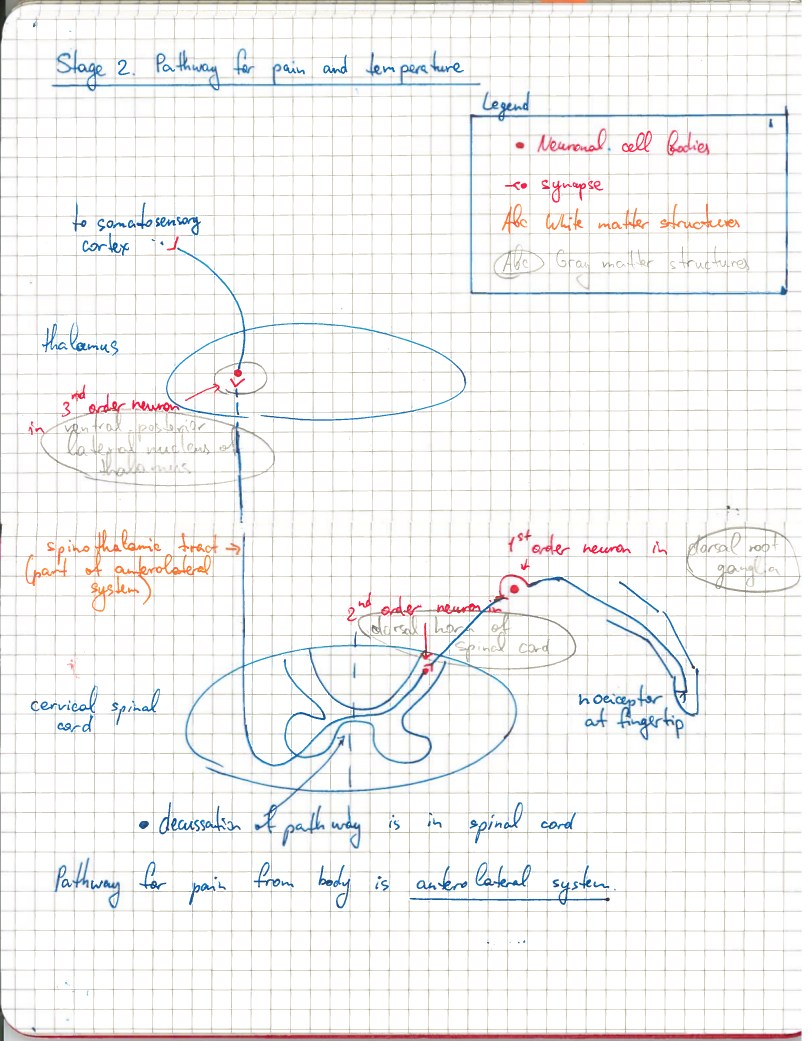 Stage 2. Pathway for pain and temperature
Legend
Neuronal cell bodies
synapse
Abc White matter structures
Abc Gray matter structures
to somatosensory
cortex
thalamus
3nd order neuron
in ventral posterior
lateral nucleus of
thalamus
spinothalamic tract →
(part of anterolateral
system)
1st order neuron in dorsal root
ganglia
2nd order neuron in
dorsal horn of
spinal cord
cervical spinal
cord
nociceptor
at fingertip
• decussation of pathway is in spinal cord
Pathway for pain from body is anterolateral system.